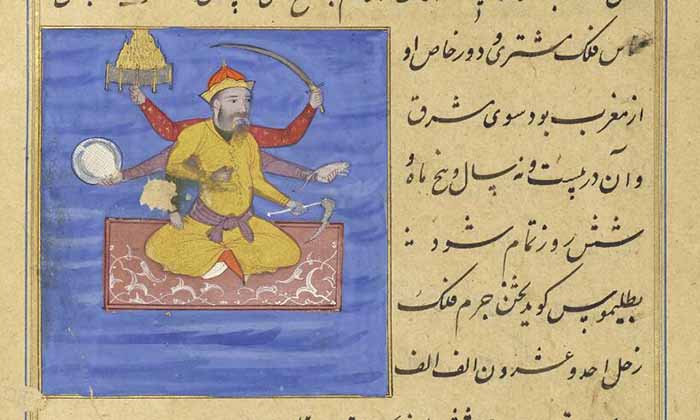 فلک مشتری و دور خاص او
از مغرب بود سوی مشرق
و آن در بیست و نه سال و پنج ماه و
شش روز تمام شود
بطلیموس کوید ثخن جرم فلک
زحل احد و عشرون الف الف